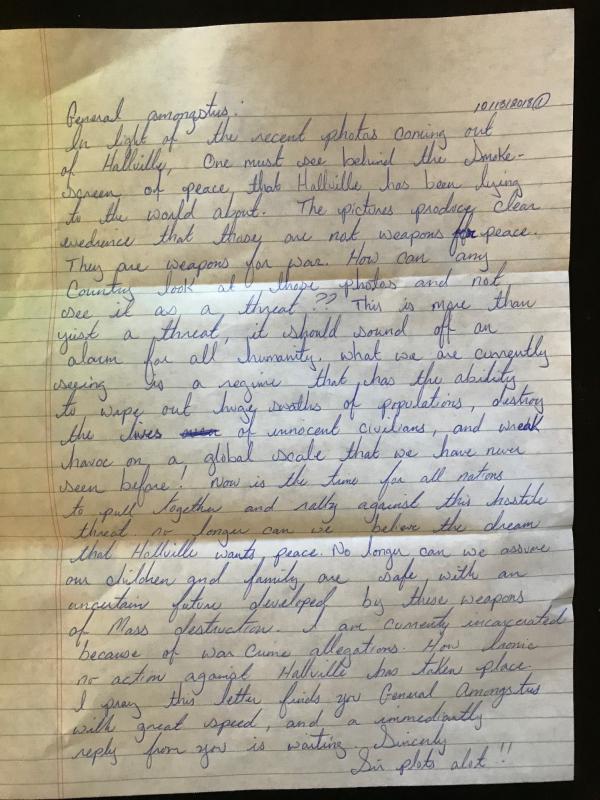 10/13/2018 ①
General Amongstus:
In light of the recent photos coming out
of Hallville, One must see behind the Smoke-
screen of peace, that Hallville has been lying
to the world about. The pictures produce clear
evedrence that those are not weapons for peace.
They are weapons for war. How can any
Country look at those photos and not
see it as a threat?? This is more than
just a threat, it should sound off an
alarm for all humanity. what we are currently
seeing is a regime that has the ability
to wipe out huge swaths of populations, destroy
the lives of innocent civilians, and wreak
havoc on a global scale that we have never
seen before! Now is the time for all nations
to pull together and rally against this hostile
threat. no longer can we believe the dream
that Hallville wants peace. No longer can we assure
our children and family are safe, with an
uncertain future developed by these weapons
of Mass destruction. I am currently incarcerated
because of war crime allegations. How Ironic
no action against Hallville has taken place.
I pray this letter finds you General Amongstus
with great speed, and a immediantly
reply from you is waiting. Sincerly
Sir plots alot!!